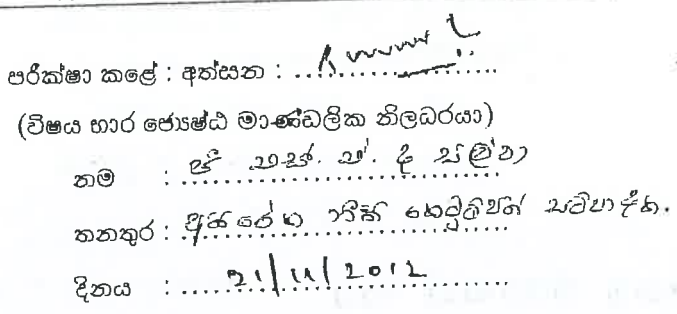 පරීක්ෂා කළේ : අත්සන : ....................
(විෂය භාර ජ්‍යෙෂ්ඨ මාණ්ඩලික නිලධරයා)
නම : ද සිල්වා
තනතුර : අතිරේක නීති කෙටුම්පත් සම්පාදක.
දිනය : 21/11/2012